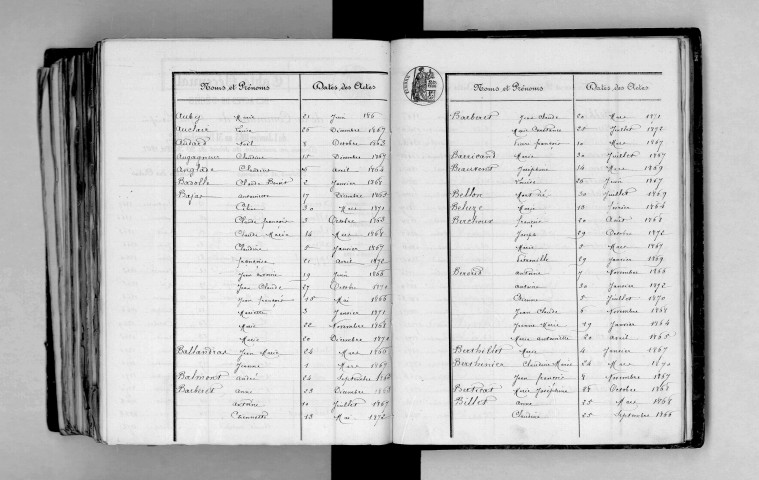 Noms et Prénoms Dates des Actes
Auby Marie 21 Juin 186
Auclair Louise 26 Décembre 1867
Audard Noël 8 Octobre 1863
Augagneur Claudine 15 Décembre 1867
Anglade Claudine 6 Avril 1864
Bazolle Claude Benoit 2 Janvier 1868
Bajas Antoinette 17 Décembre 1863
30 Mars 1871
Claude françois 3 Octobre 1863
Claude Marie 14 Mars 1868
Claudine 5 Janvier 1867
françoise 21 Avril 1872
Jean 19 Juin 1866
Jean Claude 27 Octobre 1870
Jean françois 15 Mai 1866
Mariette 3 Janvier 1871
Marie 22 Novembre 1868
Marie 20 Décembre 1870
Ballandras Jean Marie 24 Mars 1866
Jeanne 1 Mars 1867
Balmont André 24 Septembre
Barberet Anne 23 Décembre
Antoine 10 Juillet 1867
Claudette 13 Mai 1872
Noms et Prénoms Dates des Actes
Barberet Jean Claude 20 Mars 1871
Marie 25 Juillet 1872
françois 10 Mars 1867
Barricand Marie 30 Juillet 1867
Beaumont Joséphine 14 Mars 1869
Louise 26 Juin 1867
Bellon 30 Juillet 1869
Beluze Marie 13 1864
Berchoux Jeanne 20 Août 1868
Joseph 29 Octobre 1872
Marie 5 Mars 1867
Pétronille 29 Janvier 1869
Berard Antoine 7 Novembre 1866
Antoine 30 Janvier 1872
Etienne 5 Juillet 1870
Jean Claude 6 Novembre 1868
Jeanne Marie 19 Janvier 1864
Marie Antoinette 20 Avril 1865
Berthellot Marie 4 Janvier 1867
Claudine Marie 24 Mars 1870
Jean françois 8 Novembre 1867
Marie Joséphine 28 Octobre 1868
Billet Anne 25 Mars 1868
Claudine 25 Septembre 1866